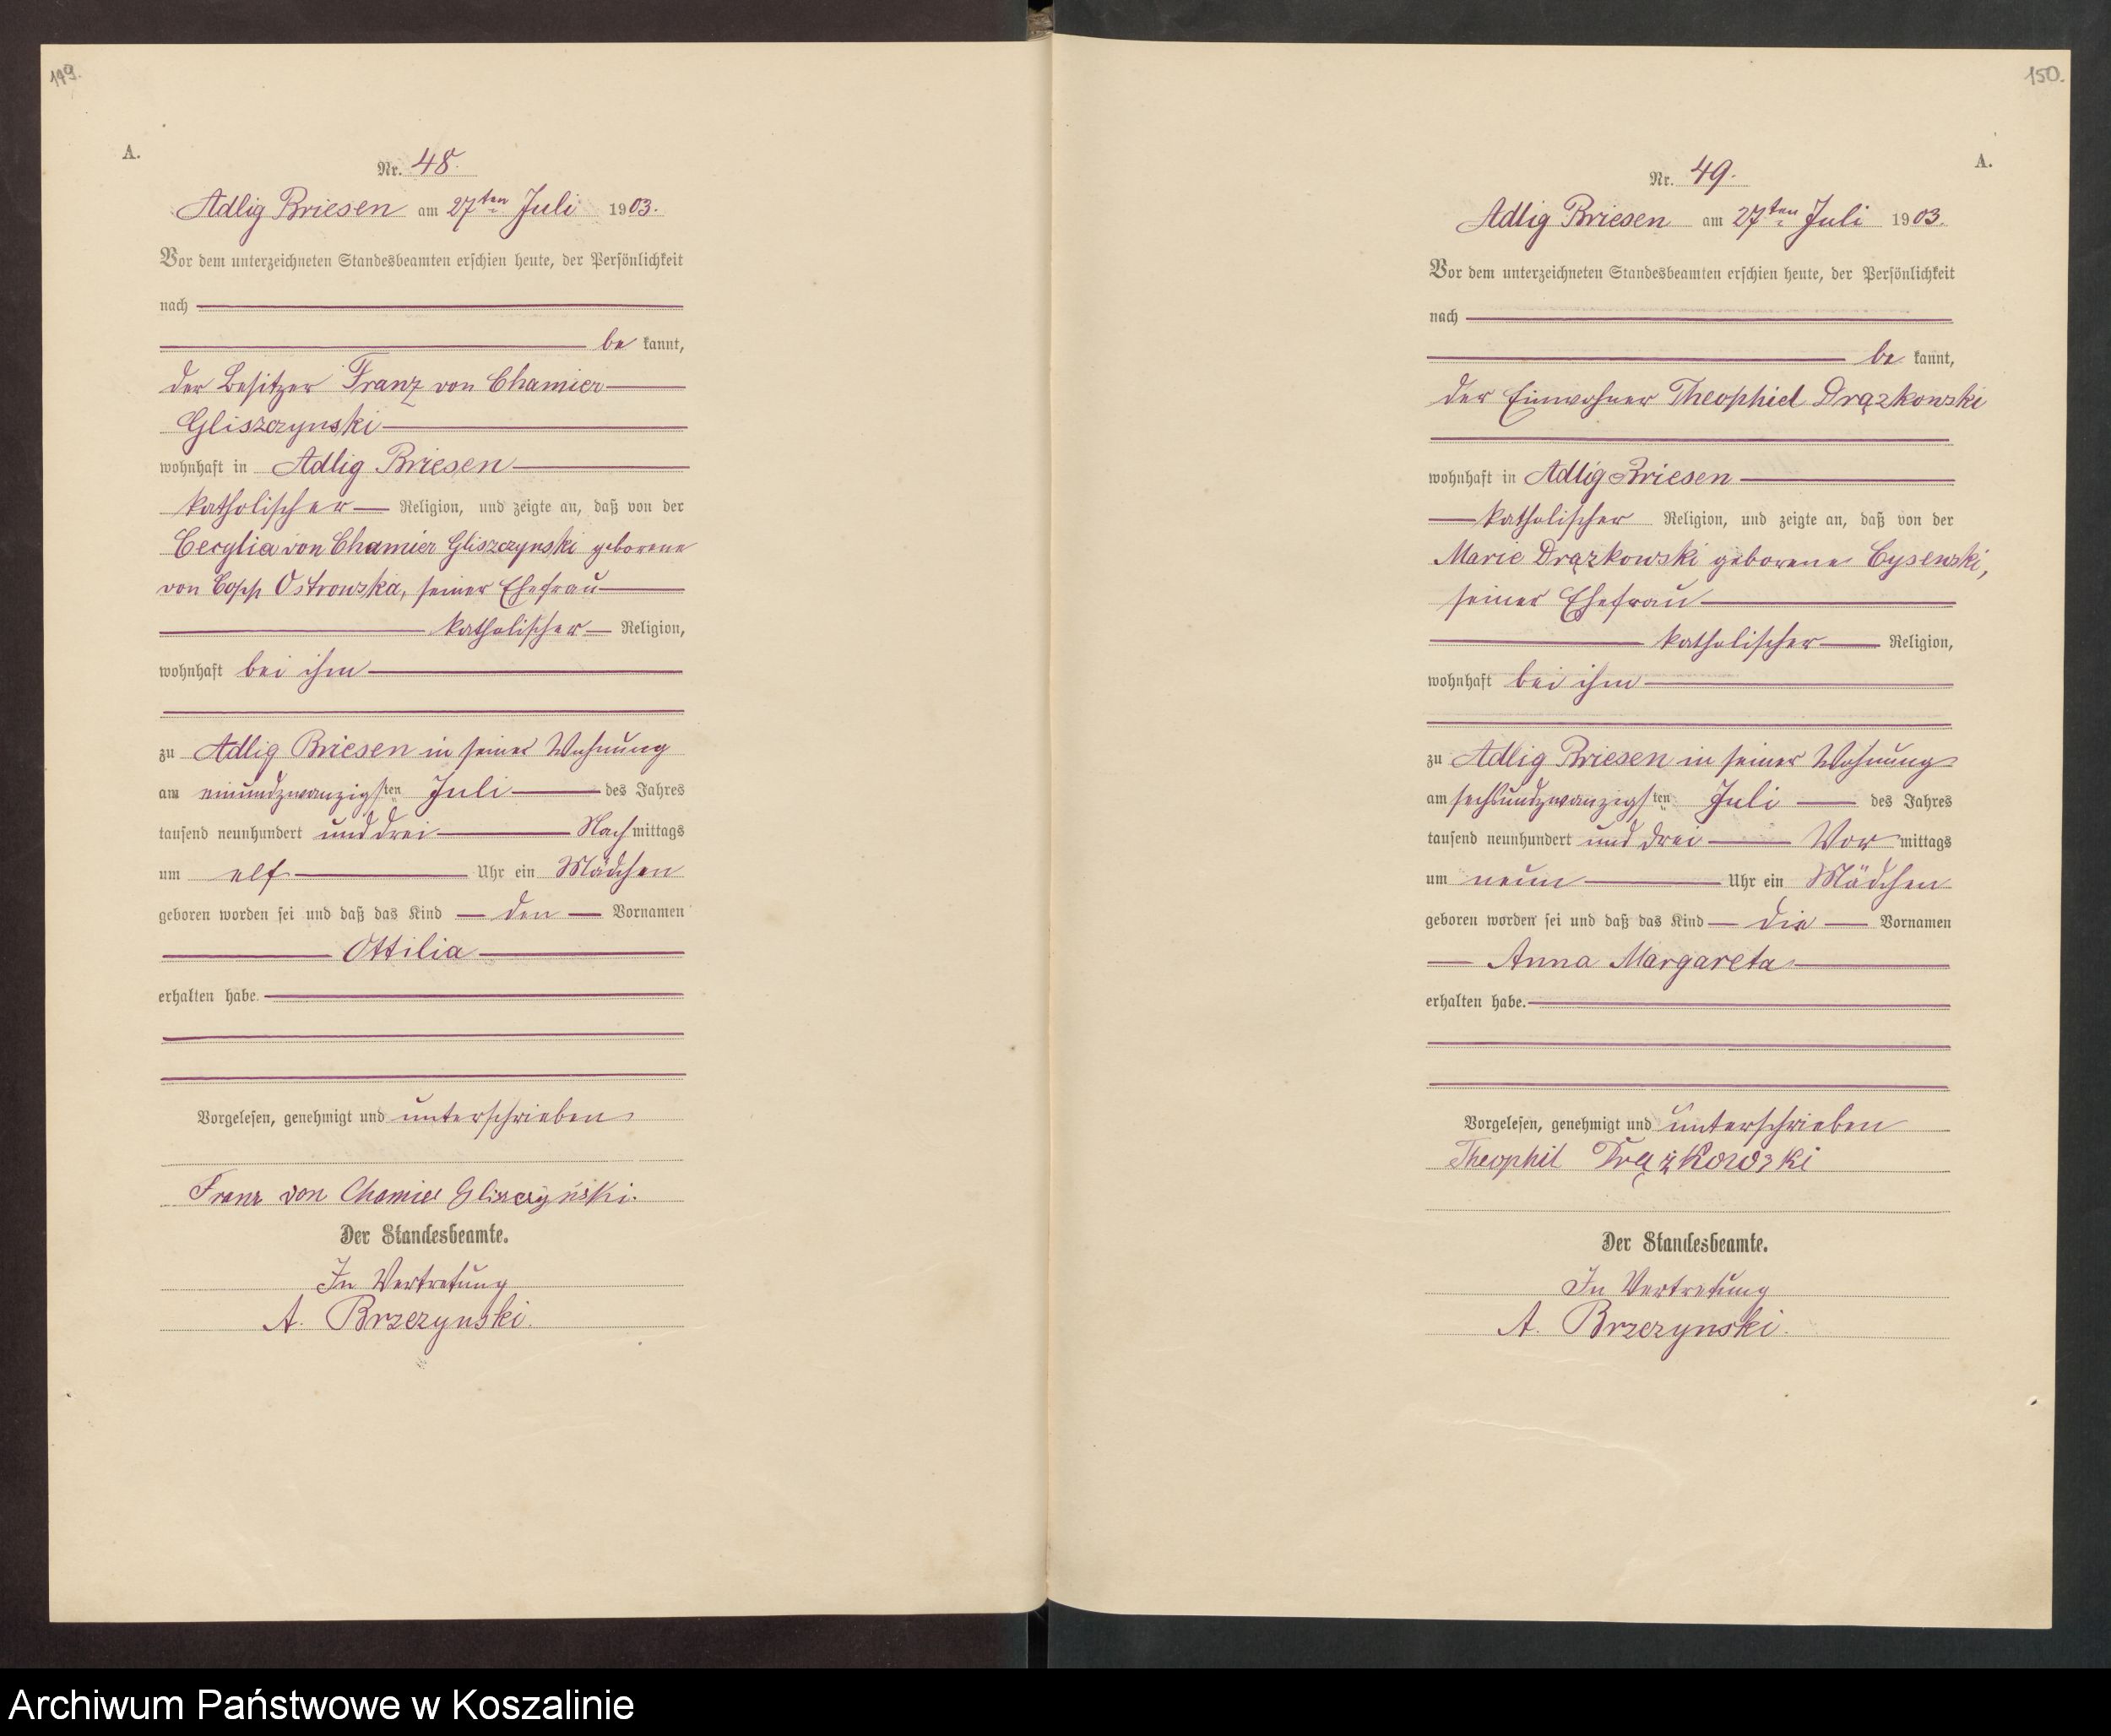 149.
A.
Nr. 48.
Adlig Briesen am 27ten Juli 1903.
Vor dem unterzeichneten Standesbeamten erschien heute, der Persönlichkeit
nach
be kannt,
der Besitzer Franz von Chamier
Gliszczynski
wohnhaft in Adlig Briesen
katholischer Religion, und zeigte an, daß von der
Cecylia von Chamier Gliszczynski geborene
von Czapp Ostrowska, seiner Ehefrau
katholischer Religion,
wohnhaft bei ihm
zu Adlig Briesen in seiner Wohnung
am einundzwanzigsten Juli des Jahres
tausend neunhundert und drei Nachmittags
um elf Uhr ein Mädchen
geboren worden sei und daß das Kind den Vornamen
Ottilia
erhalten habe.
Vorgelesen, genehmigt und unterschrieben
Franz von Chamier Gliszczyński.
Der Standesbeamte.
In Vertretung
A. Brzezynski.
150.
A.
Nr. 49.
Adlig Briesen am 27ten Juli 1903.
Vor dem unterzeichneten Standesbeamten erschien heute, der Persönlichkeit
nach
be kannt,
der Einwohner Theophiel Drązkowski
wohnhaft in Adlig Briesen
katholischer Religion, und zeigte an, daß von der
Marie Drązkowski geborene Cysewski,
seiner Ehefrau
katholischer Religion,
wohnhaft bei ihm
zu Adlig Briesen in seiner Wohnung
am sechsundzwanzigsten Juli des Jahres
tausend neunhundert und drei Vormittags
um neun Uhr ein Mädchen
geboren worden sei und daß das Kind die Vornamen
Anna Margareta
erhalten habe.
Vorgelesen, genehmigt und unterschrieben
Theophil Drążkowski
Der Standesbeamte.
In Vertretung
A. Brzezynski.
Archiwum Państwowe w Koszalinie